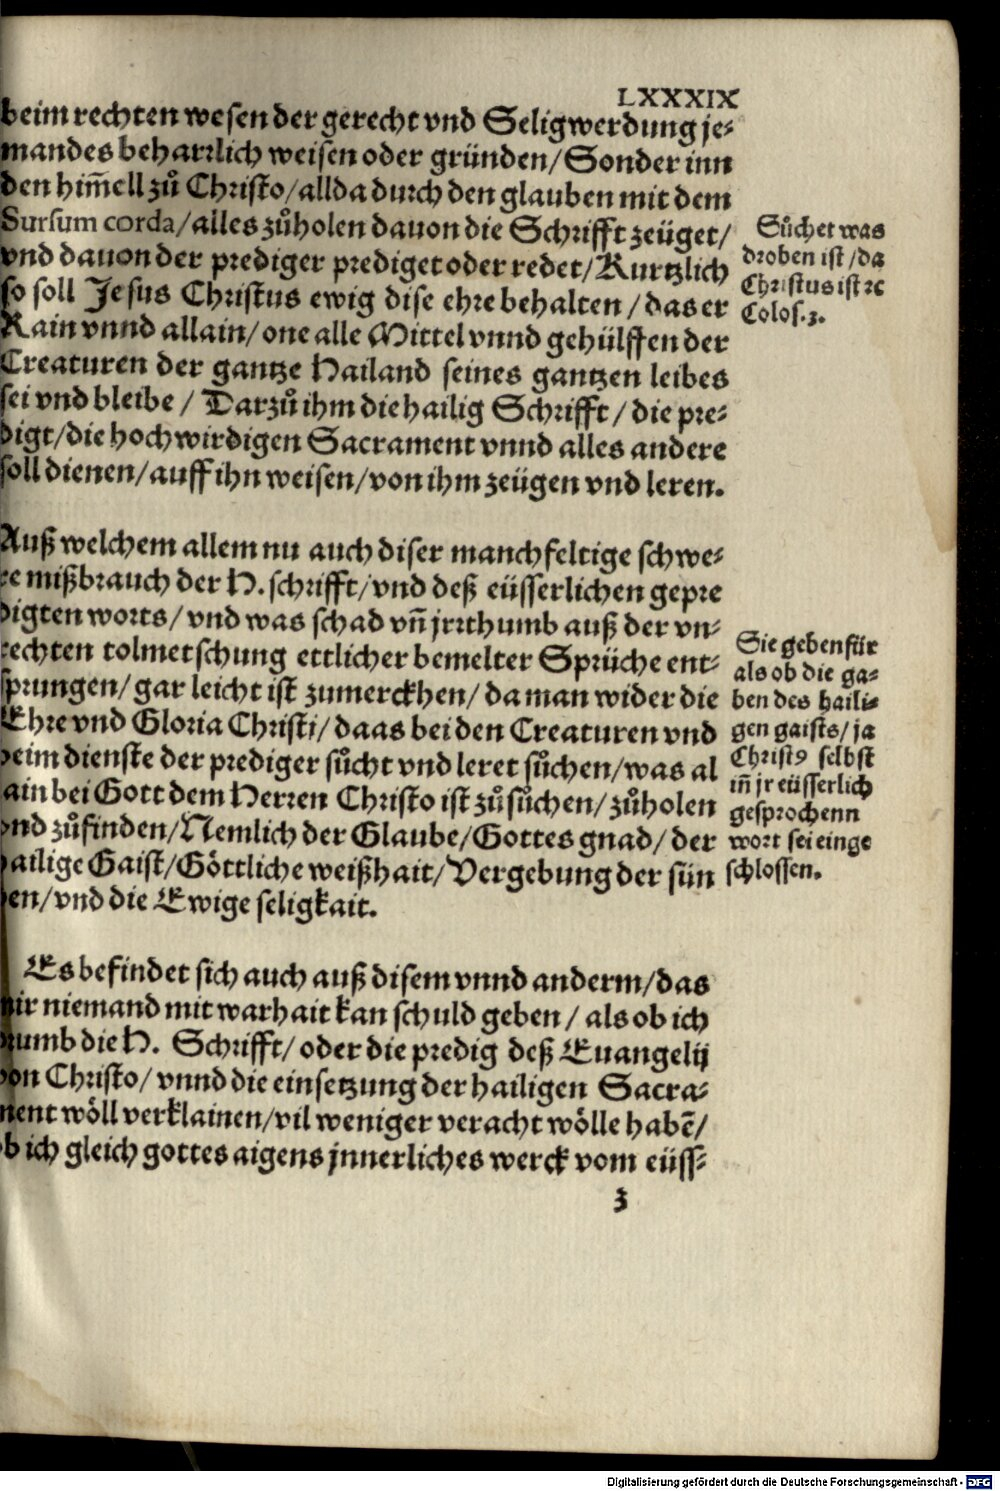 LXXXIX
beim rechten wesen der gerecht vnd Seligwerdung je⸗
mandes beharrlich weisen oder gründen/ Sonder inn
den him̃ell zů Christo/ allda durch den glauben mit dem
Sursum corda/ alles zůholen dauon die Schrifft zeüget/
vnd dauon der prediger prediget oder redet/ Kurtzlich
so soll Jesus Christus ewig dise ehre behalten/ das er
Kain vnnd allain/ one alle Mittel vnnd gehülffen der
Creaturen der gantze Hailand seines gantzen leibes
sei vnd bleibe/ Darzů ihm die hailig Schrifft/ die pre⸗
digt/ die hochwirdigen Sacrament vnnd alles andere
soll dienen/ auff ihn weisen/ von ihm zeügen vnd leren.
Sůchet was
droben ist/ da
Christus ist ꝛc
Colos. 3.
Auß welchem allem nu auch diser manchfeltige schwe⸗
re mißbrauch der H. schrifft/ vnd deß eüsserlichen gepre
digten worts/ vnd was schad vñ jrrthumb auß der vn⸗
rechten tolmetschung ettlicher bemelter Sprüche ent⸗
sprungen/ gar leicht ist zumerckhen/ da man wider die
Ehre vnd Gloria Christi/ daas bei den Creaturen vnd
beim dienste der prediger sůcht vnd leret sůchen/ was al
lain bei Gott dem Herren Christo ist zů sůchen/ zůholen
vnd zůfinden/ Nemlich der Glaube/ Gottes gnad/ der
hailige Gaist/ Göttliche weißhait/ Vergebung der sün
den/ vnd die Ewige seligkait.
Sie geben für
als ob die ga⸗
ben des haili⸗
gen gaists/ ja
Christꝰ selbst
iñ jr eüsserlich
gesprochenn
wort sei einge
schlossen.
Es befindet sich auch auß disem vnnd anderm/ das
mir niemand mit warhait kan schuld geben/ als ob ich
drumb die H. Schrifft/ oder die predig deß Euangelij
von Christo/ vnnd die einsetzung der hailigen Sacra⸗
ment wöll verklainen/ vil weniger veracht wölle habẽ/
ob ich gleich gottes aigens jnnerliches werck vom eüss⸗
3
Digitalisierung gefördert durch die Deutsche Forschungsgemeinschaft - DFG